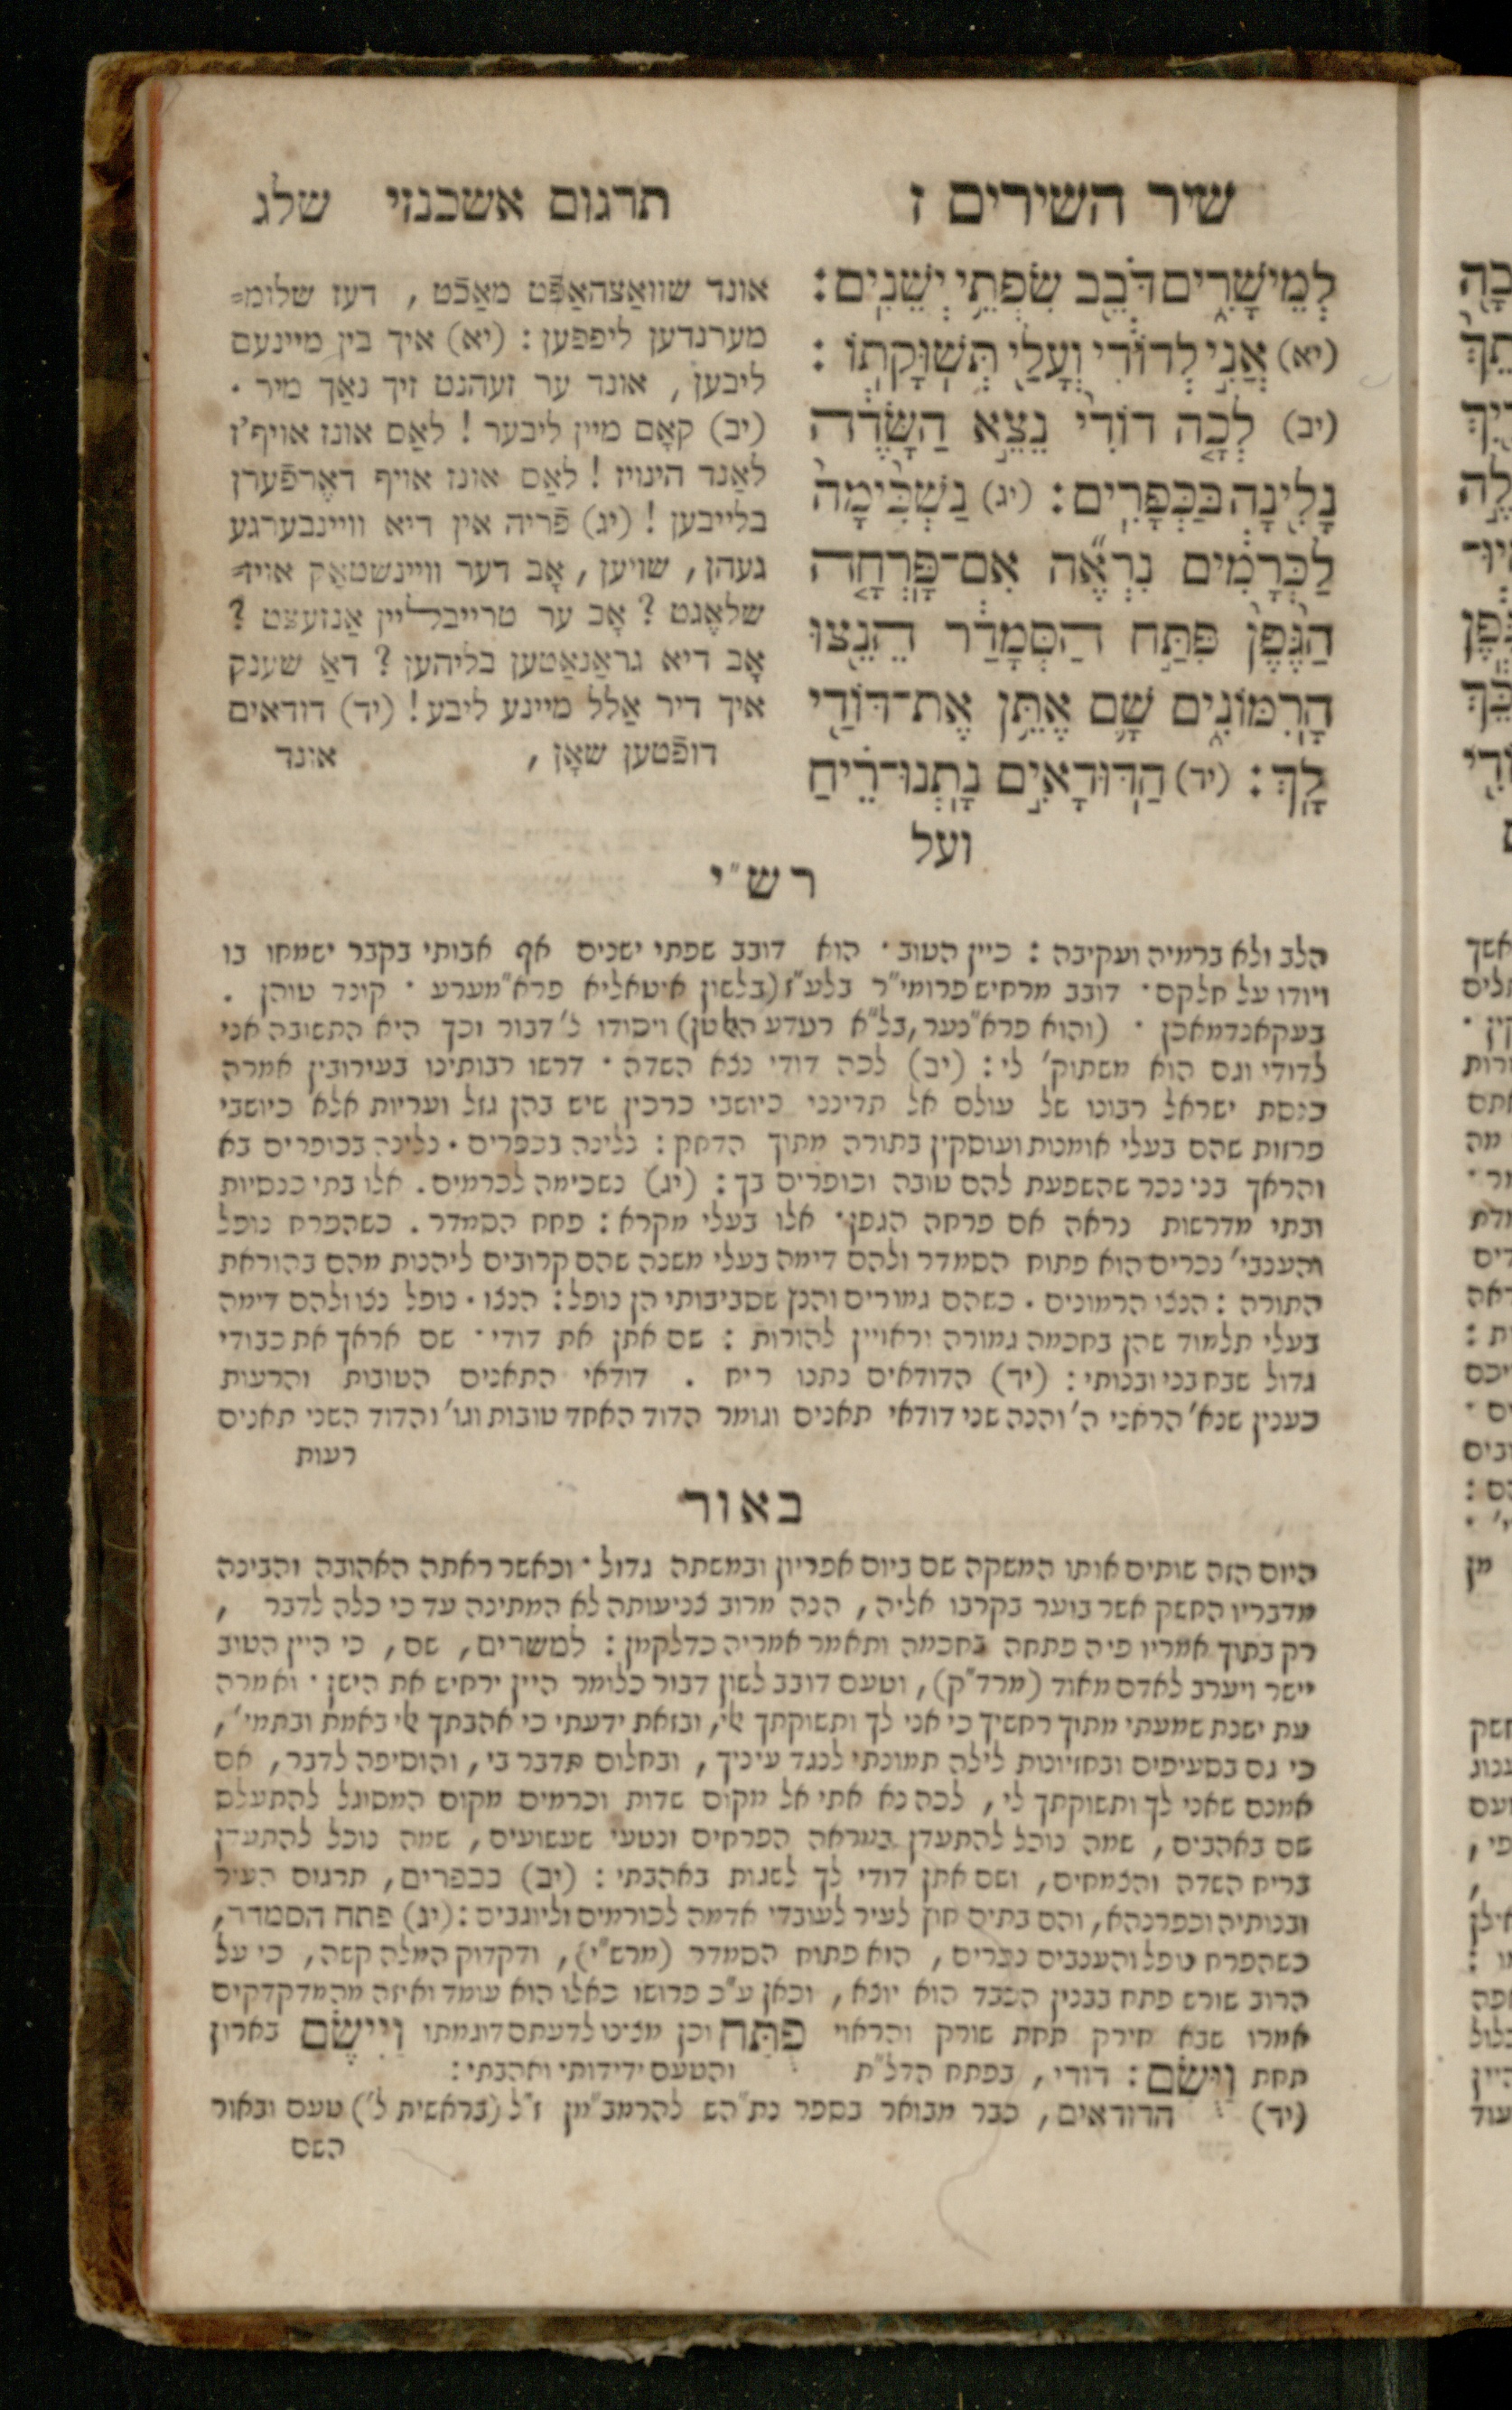 שיר השירים ז
תרגום אשכנזי שלג
לְמֵישָׁרִ֑ים דֹּבֵ֖ב שִׂפְתֵ֥י יְשֵׁנִֽים׃
(יא) אֲנִ֣י לְדוֹדִ֔י וְעָלַ֖י תְּשֽׁוּקָתֽוֹ׃
(יב) לְכָ֤ה דוֹדִי֙ נֵצֵ֣א הַשָּׂדֶ֔ה
נָלִ֖ינָה בַּכְּפָרִֽים׃ (יג) נַשְׁכִּ֙ימָה֙
לַכְּרָמִ֔ים נִרְאֶ֞ה אִם־פָּֽרְחָ֤ה
הַגֶּ֙פֶן֙ פִּתַּ֣ח הַסְּמָדַ֔ר הֵנֵ֖צוּ
הָֽרִמּוֹנִ֑ים שָׁ֛ם אֶתֵּ֥ן אֶת־דּוֹדַ֖י
לָֽךְ׃ (יד) הַֽדּוּדָאִ֣ים נָֽתְנוּ־רֵ֗יחַ
ועל
אונד שוואַצהאַפֿט מאַכֿט, דעז שלומ=
מערנדען ליפפען: (יא) איך בין מיינעם
ליבען, אונד ער זעהנט זיך נאַך מיר.
(יב) קאָם מיין ליבער! לאַס אונז אויף'ז
לאַנד הינויז! לאַס אונז אויף דאֶרפֿערן
בלייבען! (יג) פֿריה אין דיא וויינבערגע
געהן, שויען, אָב דער וויינשטאָק אויז=
שלאֶגט? אָב ער טרייבליין אַנזעצט?
אָב דיא גראַנאַטען בליהען? דאַ שענק
איך דיר אַלל מיינע ליבע! (יד) דודאים
דופֿטען שאָן, אונד
רש"י
הלב ולא ברמיה ועקיבה: כיין הטוב. הוא דובב שפתי ישנים אף אבותי בקבר ישמחו בו
ויודו על חלקם. דובב מרחיש פרומי"ר בלע"ז (בלשון איטאליא פרא"מערע. קינד טוהן.
בעקאנדמאכן. (והוא פרא"נער, בל"א רעדע האלטן) ויסודו ל' דבור וכך היא התשובה אני
לדודי וגם הוא משתוק' לי: (יב) לכה דודי נצא השדה. דרשו רבותינו בעירובין אמרה
כנסת ישראל רבונו של עולם אל תדינני כיושבי כרכין שיש בהן גזל ועריות אלא כיושבי
פרזות שהם בעלי אומנות ועוסקין בתורה מתוך הדחק: נלינה בכפרים. נלינה בכופרים בא
והראך בני נכר שהשפעת להם טובה וכופרים בך: (יג) נשכימה לכרמים. אלו בתי כנסיות
ובתי מדרשות נראה אם פרחה הגפן. אלו בעלי מקרא: פתח הסמדר. כשהפרח נופל
והענבי' נכרים הוא פתוח הסמדר ולהם דימה בעלי משנה שהם קרובים ליהנות מהם בהוראת
התורה: הנצו הרמונים. כשהם גמורים והנץ שסביבותי הן נופל: הנצו. נופל נצו ולהם דימה
בעלי תלמוד שהן בחכמה גמורה וראויין להורות: שם אתן את דודי. שם אראך את כבודי
גדול שבח בני ובנותי: (יד) הדודאים נתנו ריח. דודאי התאנים הטובות והרעות
כענין שנא' הראני ה' והנה שני דודאי תאנים וגומר הדוד האחד טובות וגו' והדוד השני תאנים
רעות
באור
היום הזה שותים אותו המשקה שם ביום אפריון ובמשתה גדול. וכאשר ראתה האהובה והבינה
מדבריו החשק אשר בוער בקרבו אליה, הנה מרוב צניעותה לא המתינה עד כי כלה לדבר,
רק בתוך אמריו פיה פתחה בחכמה ותאמר אמריה כדלקמן: למשרים, שם, כי היין הטוב
יישר ויערב לאדם מאוד (מרד"ק), וטעם דובב לשון דבור כלומר היין ירחיש את הישן. ואמרה
עת ישנת שמעתי מתוך רחשיך כי אני לך ותשוקתך אלי, ובזאת ידעתי כי אהבתך אלי באמת ובתמי',
כי גם בסעיפים ובחזיונות לילה תמונתי לנגד עיניך, ובחלום תדבר בי, והוסיפה לדבר, אם
אמנם שאני לך ותשוקתך לי, לכה נא אתי אל מקום שדות וכרמים מקום המסוגל להתעלס
שם באהבים, שמה נוכל להתעדן במראה הפרחים ונטעי שעשועים, שמה נוכל להתעדן
בריח השדה והצמחים, ושם אתן דודי לך לשגות באהבתי: (יב) בכפרים, תרגום העיר
ובנותיה וכפרנהא, והם בתים חוץ לעיר לעובדי אדמה לכורמים וליוגבים: (יג) פתח הסמדר,
כשהפרח נופל והענבים נכרים, הוא פתוח הסמדר (מרש"י), ודקדוק המלה קשה, כי על
הרוב שורש פתח בבנין הכבד הוא יוצא, וכאן ע"כ פרושו כאלו הוא עומד ואיזה מהמדקדקים
אמרו שבא חירק תחת שורק והראוי פֻּתַּח וכן מצינו לדעתם דוגמתו וַיִּישֶׂם בארון
תחת וַיּוּשַׂם: דודי, בפתח הדל"ת והטעם ידידותי ואהבתי:
(יד) הדודאים, כבר מבואר בספר נת"הש להרמב"מן ז"ל (בראשית ל') טעם ובאור
השם